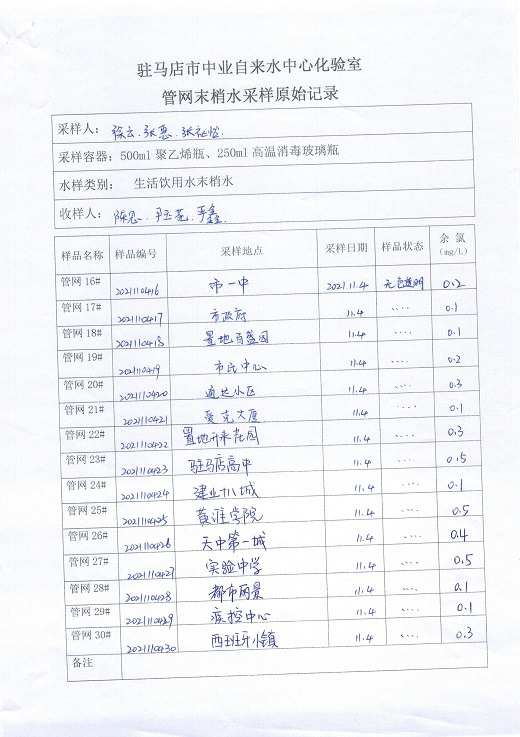 驻马店市中业自来水中心化验室
管网末梢水采样原始记录
采样人： 徐云.张惠.
采样容器：500ml 聚乙烯瓶、250ml 高温消毒玻璃瓶
水样类别： 生活饮用水末梢水
收样人：
样品名称 样品编号 采样地点 采样日期 样品状态 余氯（mg/L）
管网 16# 2021110416 市一中 2021.11.4 无色透明 0.2
管网 17# 2021110417 市政府 11.4 ···· 0.1
管网 18# 2021110418 置地百盛园 11.4 ···· 0.1
管网 19# 2021110419 市民中心 11.4 ···· 0.2
管网 20# 2021110420 通达小区 11.4 ···· 0.3
管网 21# 2021110421 爱克大厦 11.4 ···· 0.1
管网 22# 2021110422 置地开来花园 11.4 ···· 0.3
管网 23# 2021110423 驻马店高中 11.4 ···· 0.5
管网 24# 2021110424 建业十八城 11.4 ···· 0.1
管网 25# 2021110425 黄淮学院 11.4 ···· 0.5
管网 26# 2021110426 天中第一城 11.4 ···· 0.4
管网 27# 2021110427 实验中学 11.4 ···· 0.5
管网 28# 2021110428 都市丽景 11.4 ···· 0.1
管网 29# 2021110429 疾控中心 11.4 ···· 0.1
管网 30# 2021110430 西班牙小镇 11.4 ···· 0.3
备注